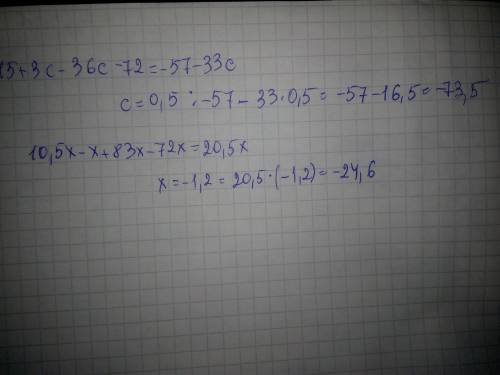 15+3c-36c-72=-57-33c
c=0,5 : -57-33·0,5=-57-16,5=-73,5
10,5x-x+83x-72x=20,5x
x=-1,2=20,5·(-1,2)=-24,6